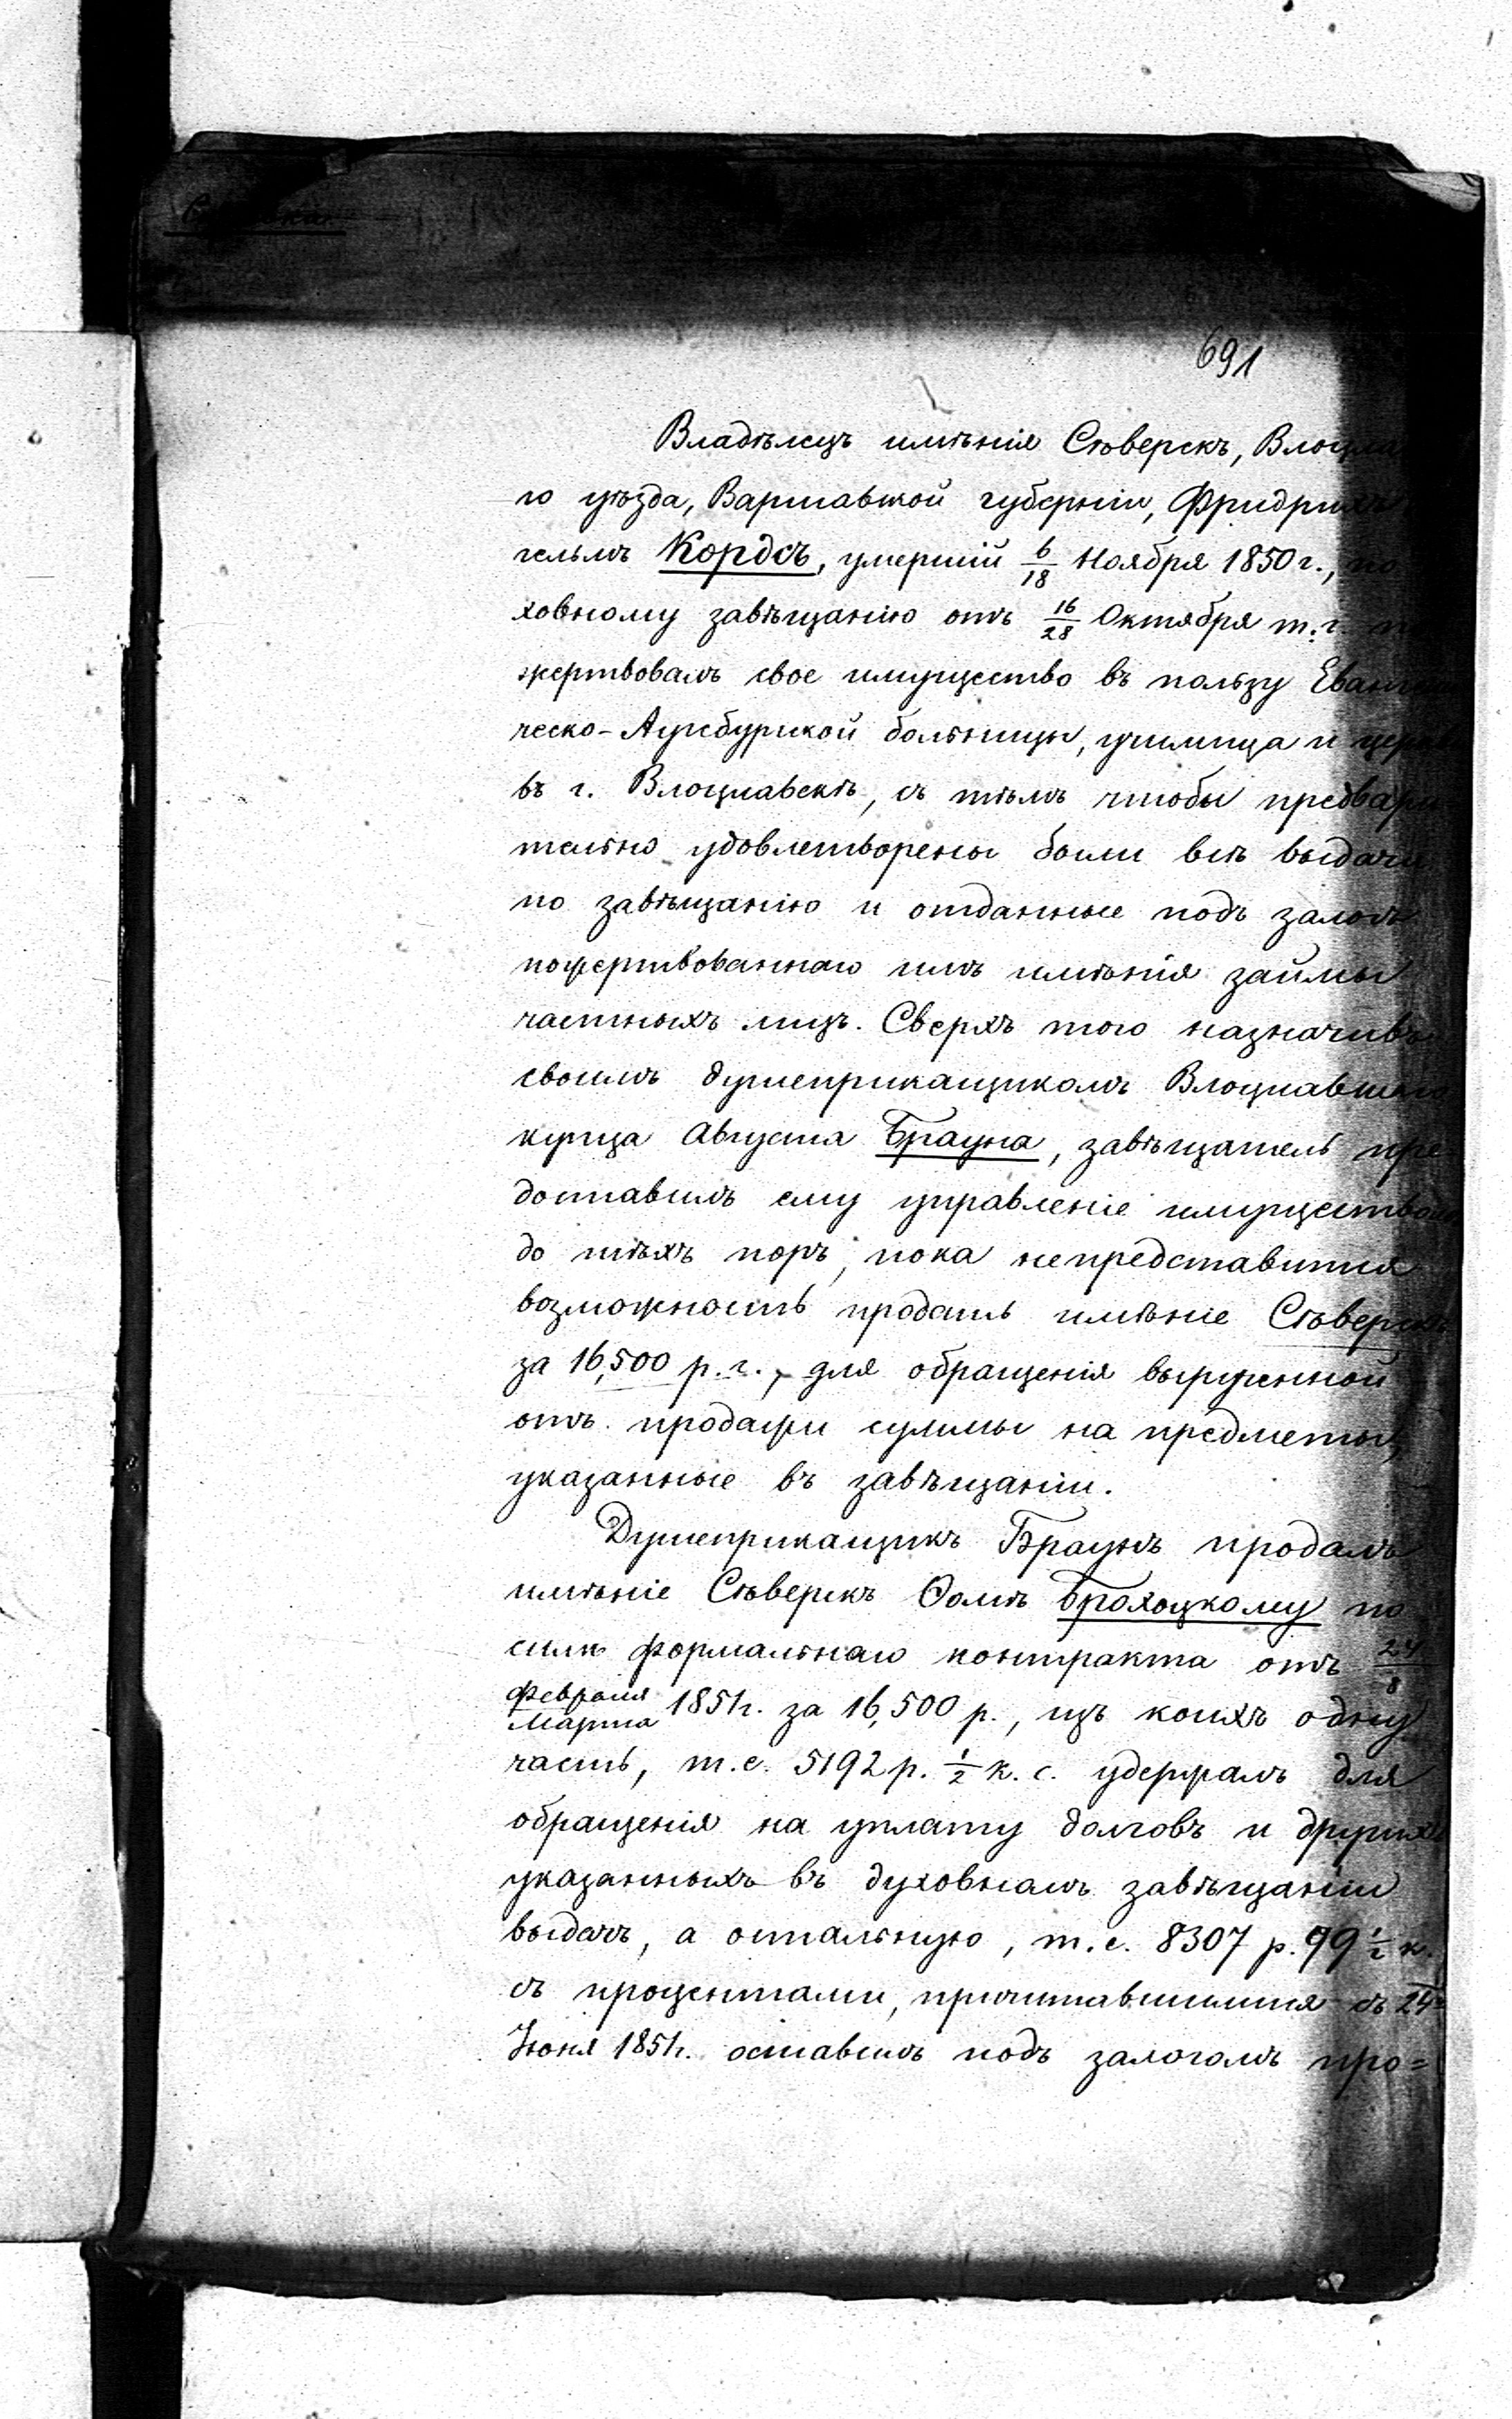 691
Владѣлецъ имѣнія Сѣверскъ, Влоцла
го уѣзда, Варшавской губерніи, Фридрихъ
гельмъ Кордсъ, умершій 6/18 Ноября 1850 г., по
ховному завѣщанію отъ 16/28 Октября т. г.
жертвовалъ свое имущество въ пользу Еванг
ческо-Аугсбургской больницы, училища и цер
въ г. Влоцлавскѣ, съ тѣмъ чтобы предвари
тельно удовлетворены были всѣ выдачи
по завѣщанію и отданные подъ залогъ
пожертвованнаго имъ имѣнія займы
частныхъ лицъ. Сверхъ того назначивъ
своимъ душеприкащикомъ Влоцлавскаго
купца Августа Брауна, завѣщатель пре
доставилъ ему управленіе имуществомъ
до тѣхъ поръ, пока непредставится
возможность продать имѣніе Сѣверскъ
за 16,500 р. г., для обращенія вырученной
отъ продажи суммы на предметы,
указанные въ завѣщаніи.
Душеприкащикъ Браунъ продалъ
имѣніе Сѣверскъ Ѳомѣ Брохоцкому по
силѣ формальнаго контракта отъ 24/8
Февраля/Марта 1851 г. за 16,500 р., изъ коихъ одну
часть, т. е. 5192 р. 1/2 к. с. удержалъ для
обращенія на уплату долговъ и другихъ
указанныхъ въ духовномъ завѣщаніи
выдачъ, а остальную, т. е. 8307 р. 99 1/2 к.
съ процентами, причитавшимися съ 24
Іюня 1851 г. оставилъ подъ залогомъ про=